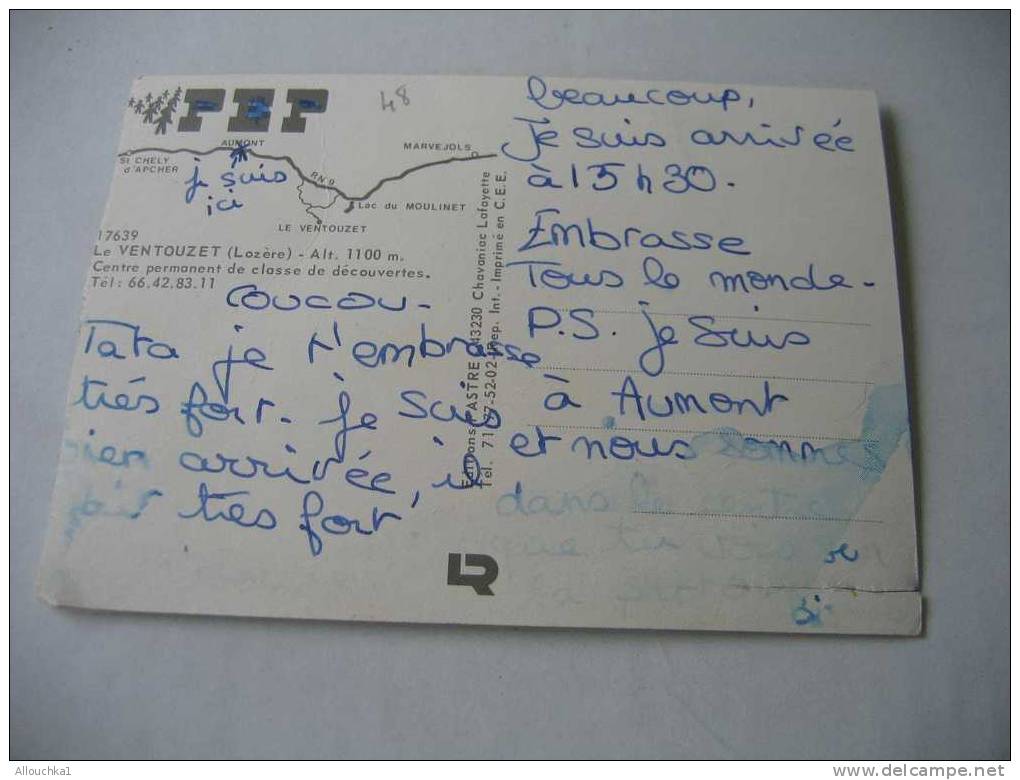 PEP
48
AUMONT
MARVEJOLS
St CHELY
d'APCHER
je suis
ici
RN 9
Lac du MOULINET
LE VENTOUZET
17639
Le VENTOUZET (Lozère) - Alt. 1100 m.
Centre permanent de classe de découvertes.
Tél : 66.42.83.11
coucou -
Tata je t'embrasse
très fort. Je suis
bien arrivée, il
fait très fort
43230 Chavaniac Lafayette
Rep. Int. - Imprimé en C.E.E.
LR
beaucoup,
Je suis arrivée
à 15 h 30.
Embrasse
Tous le monde.
P.S. je suis
à Aumont
et nous sommes
dans le
que tu
Allouchka1
delcampe.net